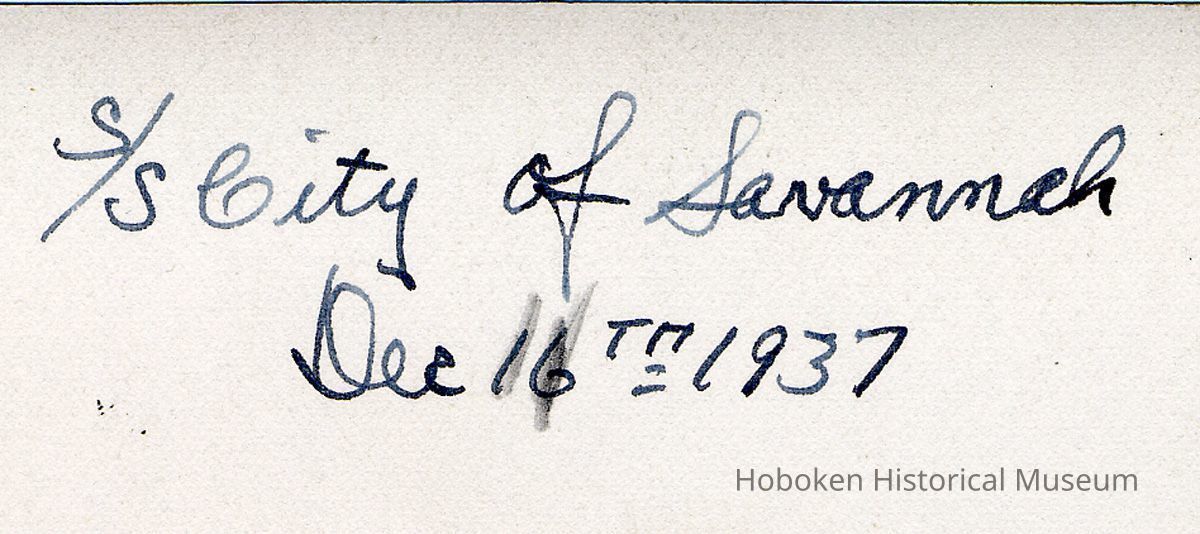 S/S City of Savannah
Dec 16TH 1937
Hoboken Historical Museum